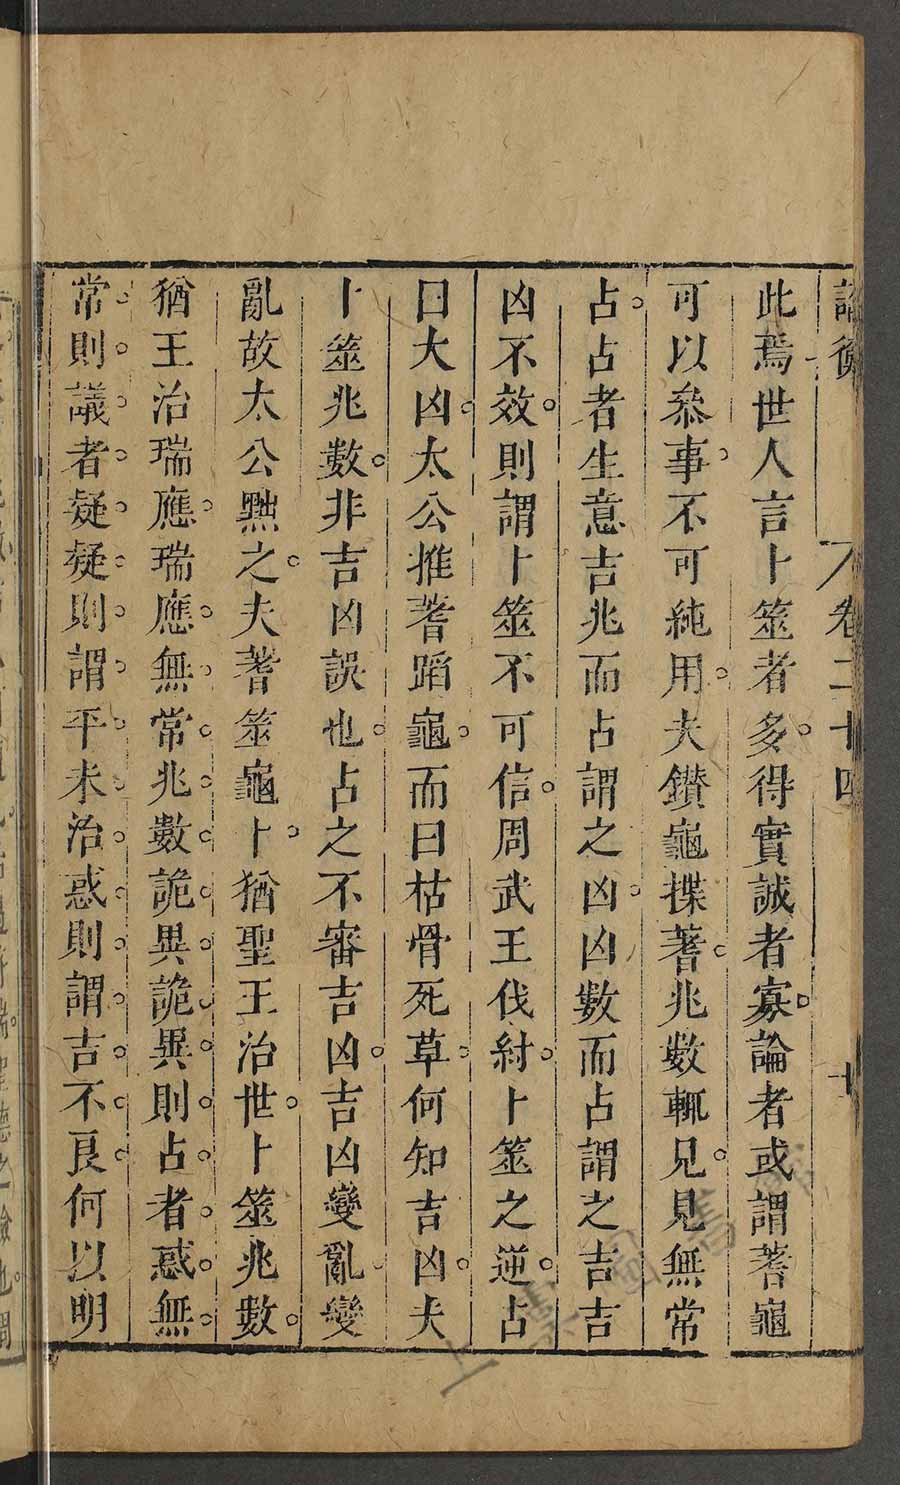 論衡 卷二十四 十
此焉世人言卜筮者多得實誠者寡論者或謂蓍龜
可以叅事不可純用夫鑚龜揲蓍兆數輒見見無常
占占者生意吉兆而占謂之凶凶數而占謂之吉吉
凶不效則謂卜筮不可信周武王伐紂卜筮之逆占
曰大凶太公推蓍蹈龜而曰枯骨死草何知吉凶夫
卜筮兆數非吉凶誤也占之不審吉凶吉凶變亂變
亂故太公黜之夫蓍筮龜卜猶聖王治世卜筮兆數
猶王治瑞應瑞應無常兆數詭異詭異則占者惑無
常則議者疑疑則謂平未治惑則謂吉不良何以明